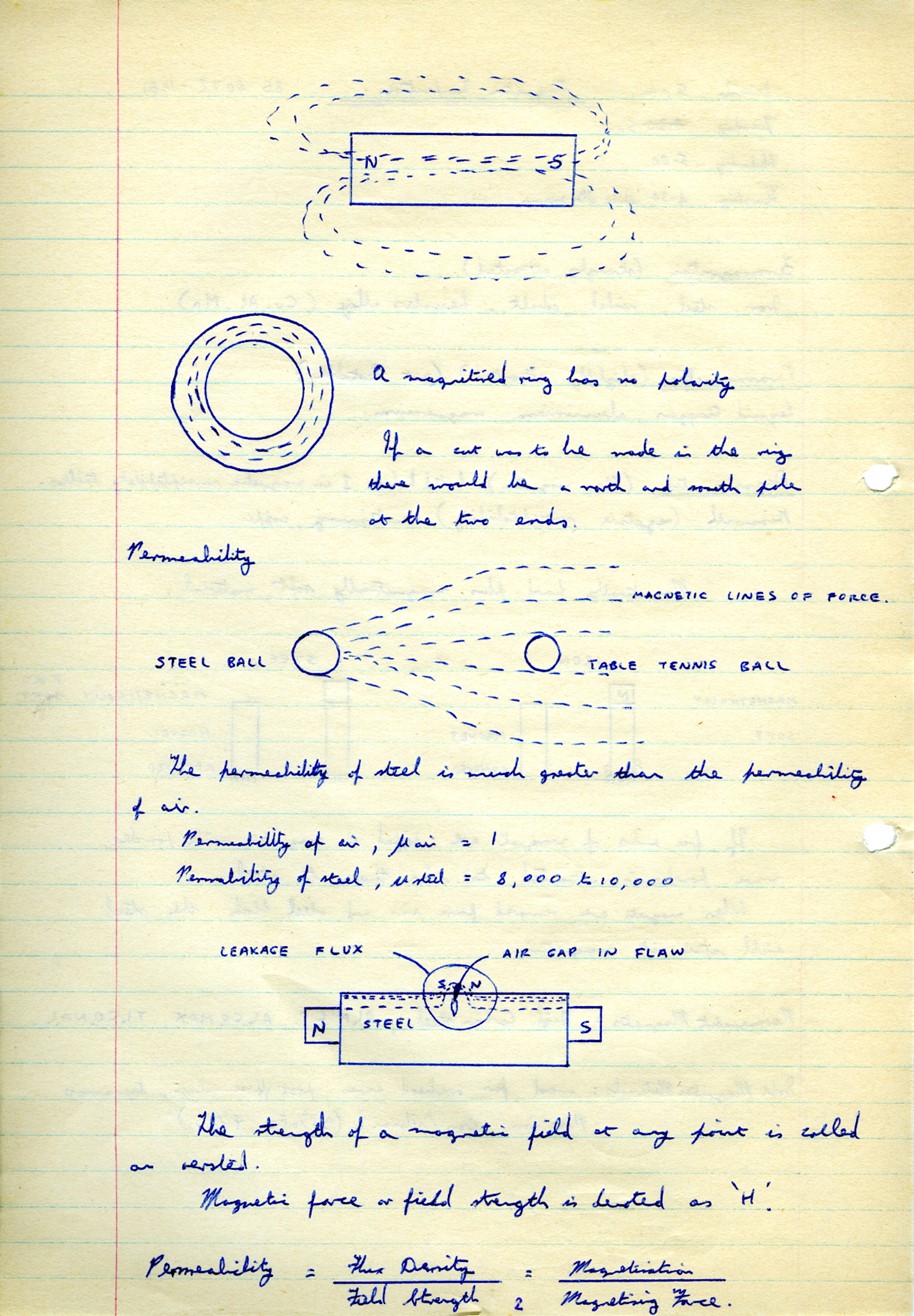 N S
A magnitired ring has no polarity
If a cut was to be made in the ring
there would be a north and south pole
at the two ends.
Permeability
MAGNETIC LINES OF FORCE.
STEEL BALL
TABLE TENNIS BALL
The permeability of steel is much greater than the permeability
of air.
Permeability of air, μ air = 1
Permability of steel, μ steel = 8,000 to 10,000
LEAKAGE FLUX AIR GAP IN FLAW
S N
N STEEL S
The strength of a magnetic field at any point is called
an oersted.
Magnetic force or field strength is denoted as 'H'.
Permeability = Flux Density = Magnetisation
Field Strength Magnetising Force.
2